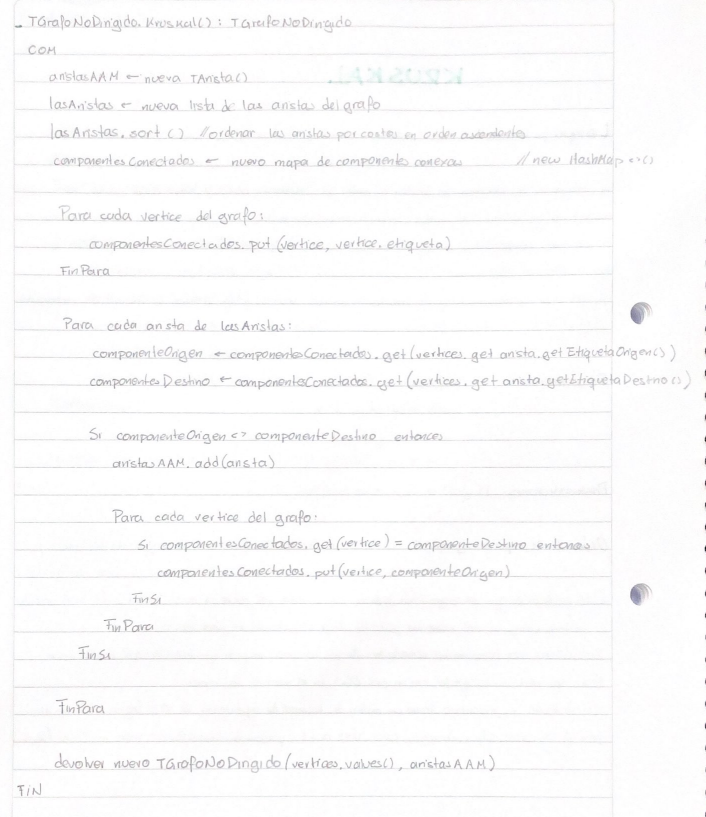 - TGrafoNoDirigido.Kruskal() : TGrafoNoDirigido
COM
aristasAAM ← nueva TArista()
lasAristas ← nueva lista de las aristas del grafo
lasAristas.sort() //ordenar las aristas por costes en orden ascendentes
componentesConectados ← nuevo mapa de componente conexas // new HashMap<>()
Para cada vertice del grafo:
componentesConectados.put(vertice, vertice.etiqueta)
FinPara
Para cada arista de lasAristas:
componenteOrigen ← componentesConectados.get(vertices.get arista.getEtiquetaOrigen())
componentesDestino ← componentesConectados.get(vertices.get arista.getEtiquetaDestino())
Si componenteOrigen <> componenteDestino entonces
aristasAAM.add(arista)
Para cada vertice del grafo:
Si componentesConectados.get(vertice) = componenteDestino entonces
componentesConectados.put(vertice, componenteOrigen)
FinSi
FinPara
FinSi
FinPara
devolver nuevo TGrafoNoDirigido(vertices.values(), aristasAAM)
FIN